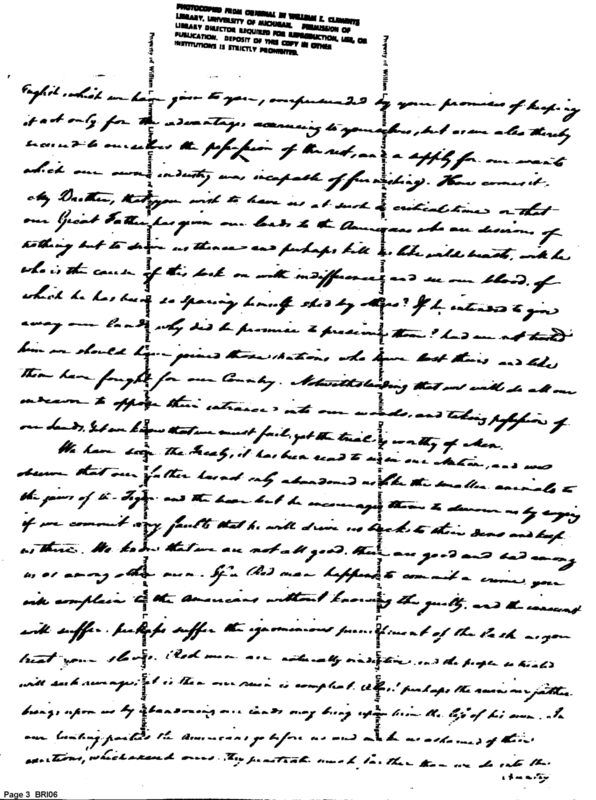 PHOTOCOPIED FROM ORIGINAL IN WILLIAM L. CLEMENTS
LIBRARY, UNIVERSITY OF MICHIGAN. PERMISSION OF
LIBRARY DIRECTOR REQUIRED FOR REPRODUCTION, USE, OR
PUBLICATION. DEPOSIT OF THIS COPY IN OTHER
INSTITUTIONS IS STRICTLY PROHIBITED.
English, which we have given to you, overpersuaded by your promises of keeping
it not only for the advantages accruing to yourselves, but as we also thereby
secured to ourselves the possession of the rest, and a supply for our wants
which our own industry was incapable of furnishing. How comes it,
My Brother, that you wish to leave us at such a critical time or that
our Great Father has given our lands to the Americans who are desirous of
nothing but to drive us thence and perhaps kill us like wild beasts, will he
who is the cause of this look on with indifference and see our blood, of
which he has been so sparing himself shed by others? If he intended to give
away our lands why did he promise to preserve them? had we not trusted
him we should have joined those nations who have lost theirs and like
them have fought for our Country. Notwithstanding that we will do all our
endeavor to oppose their entrance into our woods, and taking possession of
our lands, yet we know that we must fail, yet the trial is worthy of Men.
We have seen the Treaty, it has been read to us in our Nation, and we
observe that our father has not only abandoned us like the smaller animals to
the jaws of the Tyger and the bear but he encourages them to devour us by saying
if we commit any faults that he will drive us back to their dens and keep
us there. We know that we are not all good, there are good and bad among
us as among other men. If a Red man happens to commit a crime you
will complain to the Americans without knowing the guilty, and the innocent
will suffer, perhaps suffer the ignominious punishment of the Lash as you
treat your slaves. Red men are naturally vindictive, and the people so treated
will seek revenge: it is then our ruin is compleat. Alas! perhaps the ruin our father
brings upon us by abandoning our lands may bring upon him the loss of his own. In
our hunting parties the Americans go before us and make us ashamed of their
exertions, which exceed ours. They penetrate much farther than we do into the
Country
Property of William L. Clements Library, University of Michigan
Page 3 BRI06